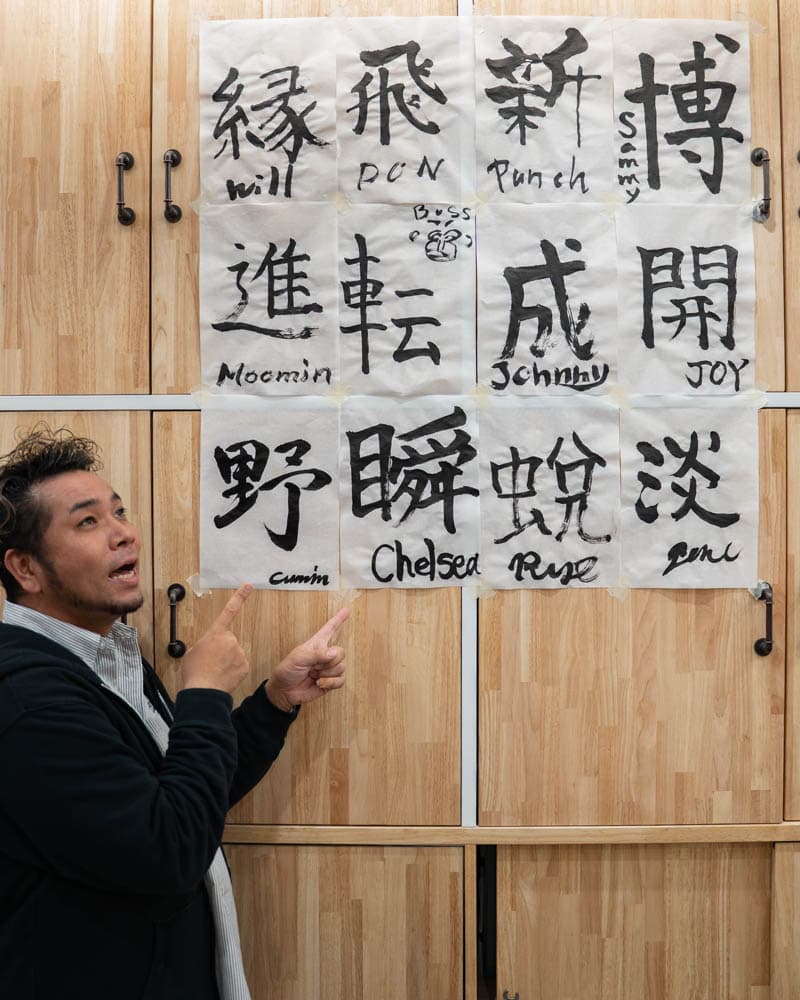 縁
will
飛
DON
新
Punch
博
Sammy
進
Moomin
Boss
転
成
Johnny
開
JOY
野
cumin
瞬
Chelsea
蛻
淡